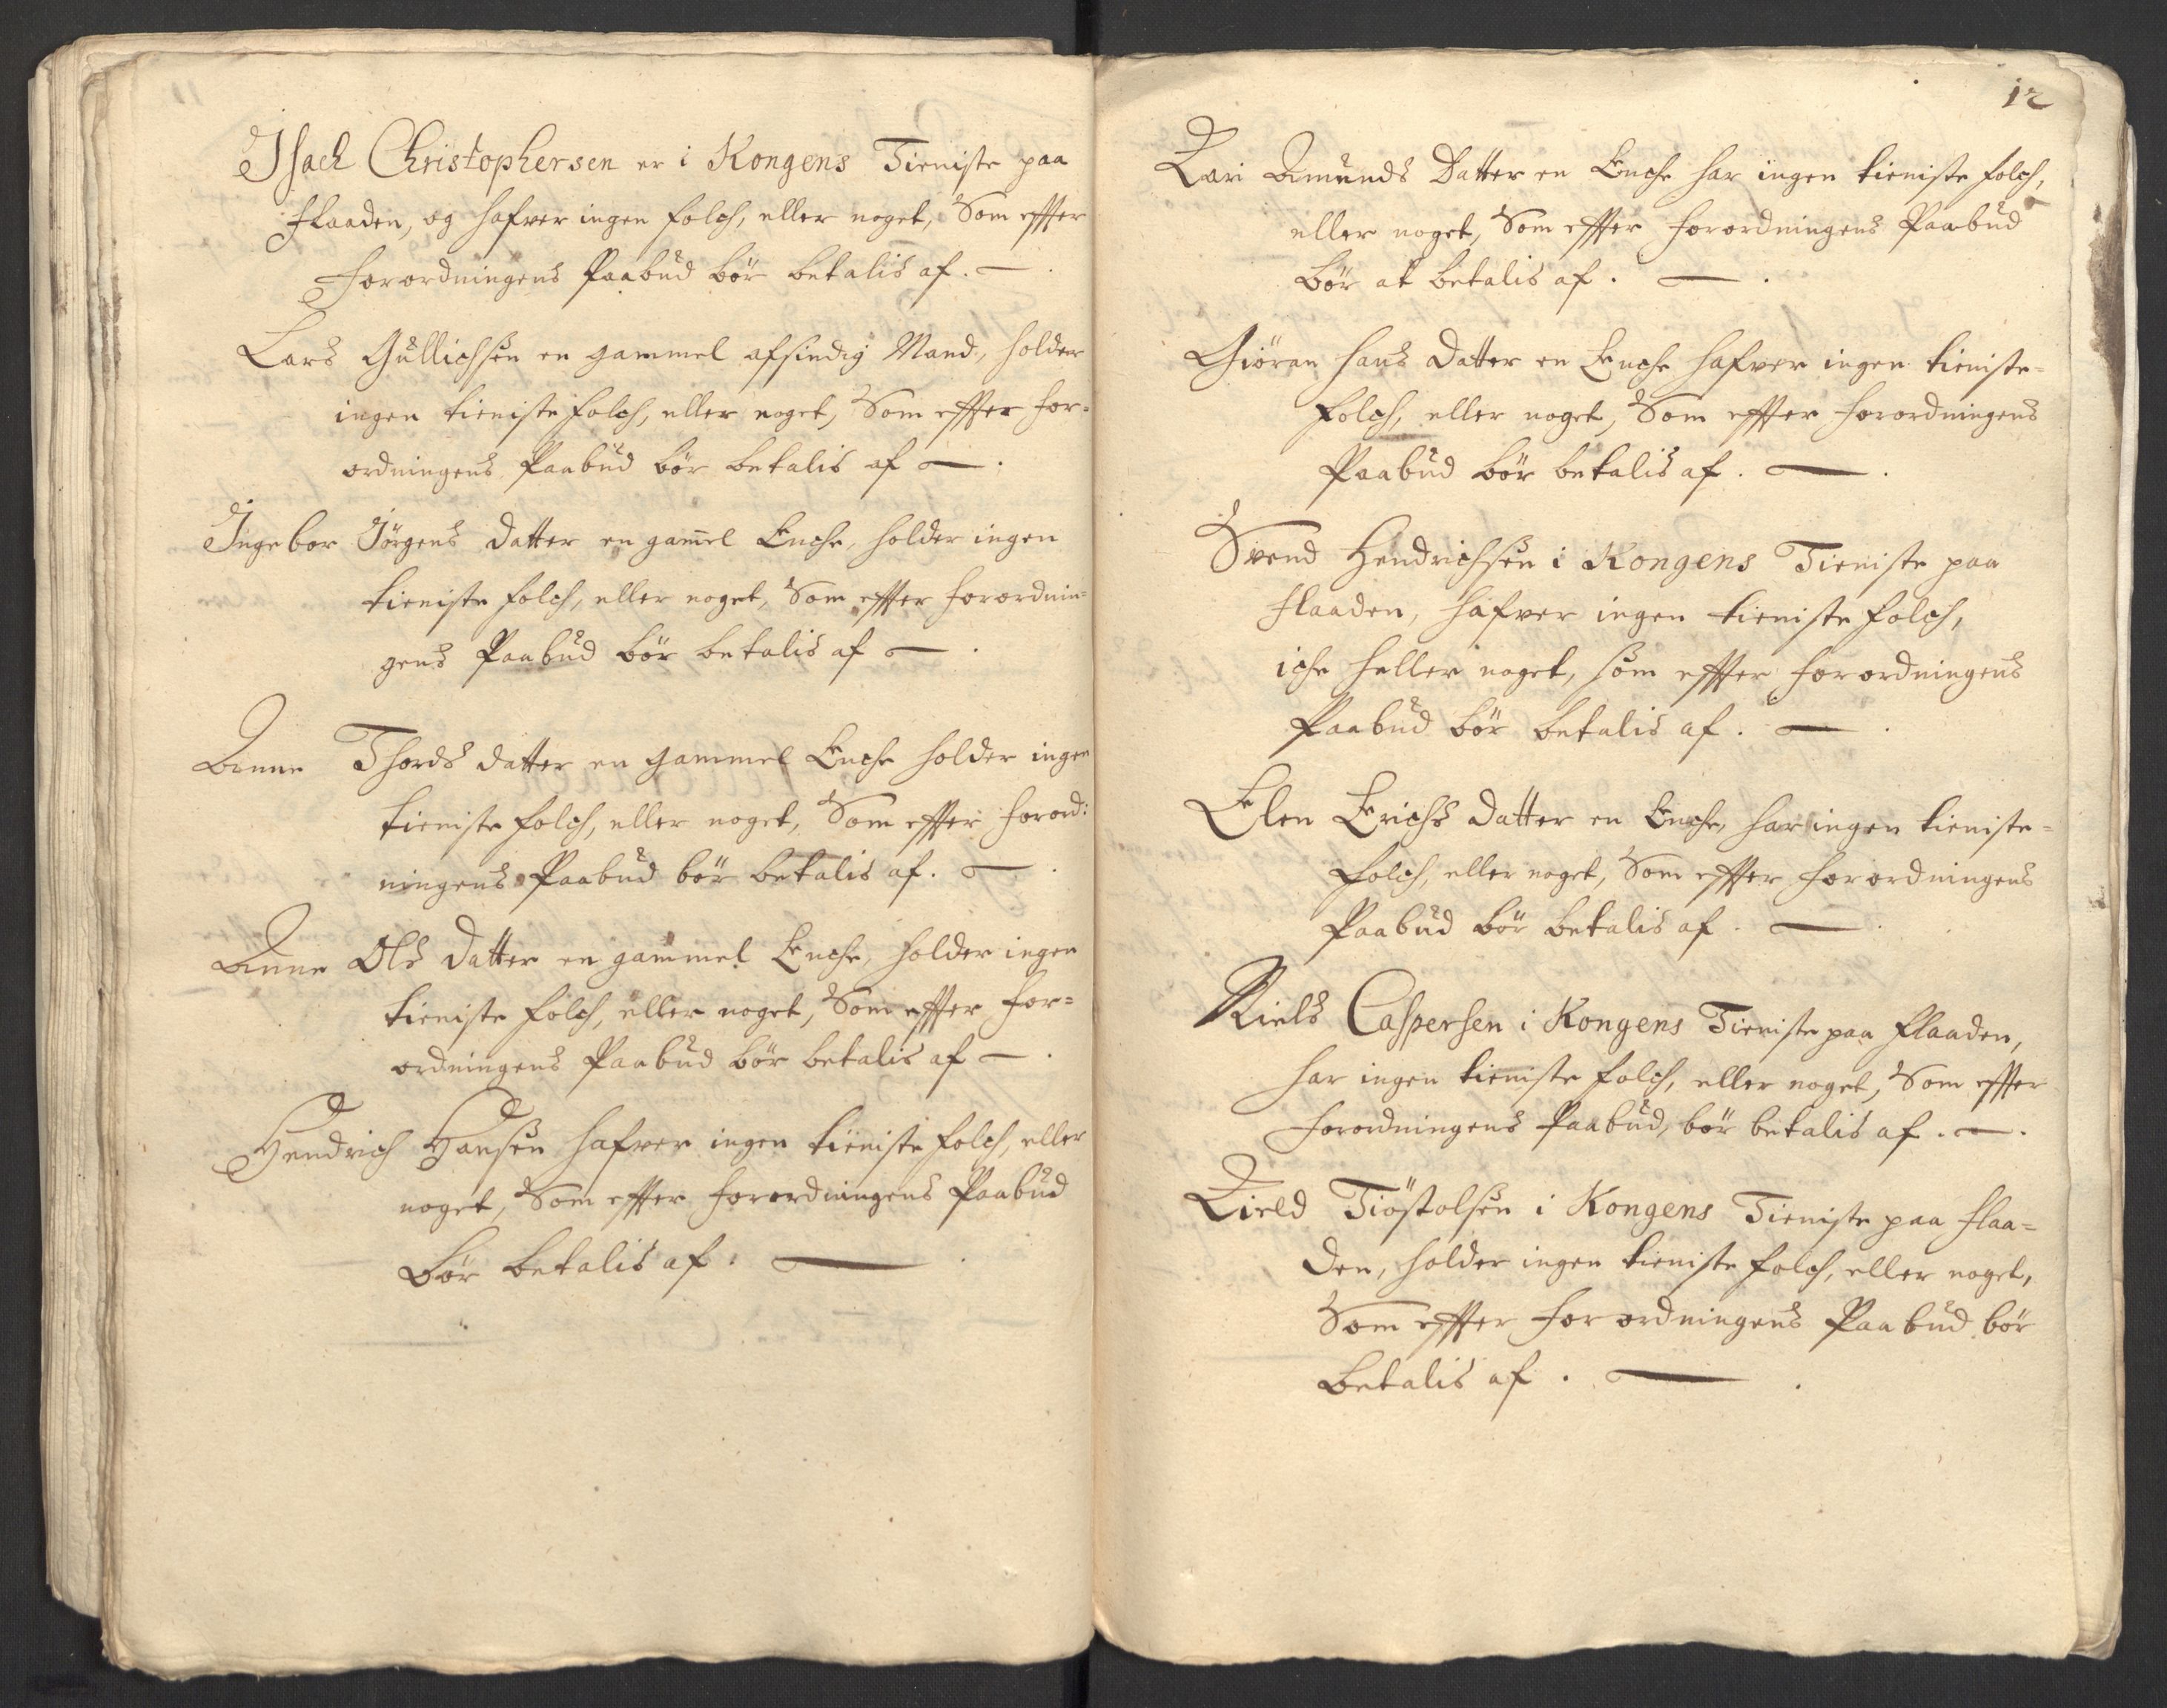 Isach Christophersen er i Kongens Tieniste paa
Flaaden, og hafver ingen folch, eller noget, Som effter
forordningens Paabud bør betalis af. —
Lars Gullichsen en gammel afsindig Mand, holder
ingen tieniste folch, eller noget, Som effter for-
ordningens Paabud bør betalis af —.
Ingebor Jörgens datter en gam̄el Enche, holder ingen
tieniste folch, eller noget, Som effter forordnin-
gens Paabud bør betalis af —.
Anne Thords datter en gammel Enche holder ingen
tieniste folch, eller noget, Som effter forord:
ningens Paabud bør betalis af. —.
Anne Ols datter en gammel Enche, holder ingen
tieniste folch, eller noget, Som effter for=
ordningens Paabud bør betalis af —.
Hendrich Hansen hafver ingen tieniste folch, eller
noget, Som effter forordningens Paabud
bør betalis af. —.
12
Kari Amunds Datter en Enche har ingen tieniste folch,
eller noget, Som effter forordningens Paabud
bør at betalis af. —.
Giöran Hans datter en Enche hafver ingen tieniste=
folch, eller noget, Som effter forordningens
Paabud bør betalis af. —.
Svend Hendrichsen i Kongens Tieniste paa
flaaden, hafver ingen tieniste folch,
iche heller noget, som effter forordningens
Paabud bør betalis af. —.
Elen Erichs datter en Enche, har ingen tieniste=
folch, eller noget, Som effter forordningens
Paabud bør betalis af. —.
Niels Caspersen i Kongens Tieniste paa flaaden,
har ingen tieniste folch, eller noget, Som effter
forordningens Paabud, bør betalis af. —.
Kield Tiöstolsen i Kongens Tieniste paa flaa=
den, holder ingen tieniste folch, eller noget,
Som effter forordningens Paabud bør
betalis af. —.